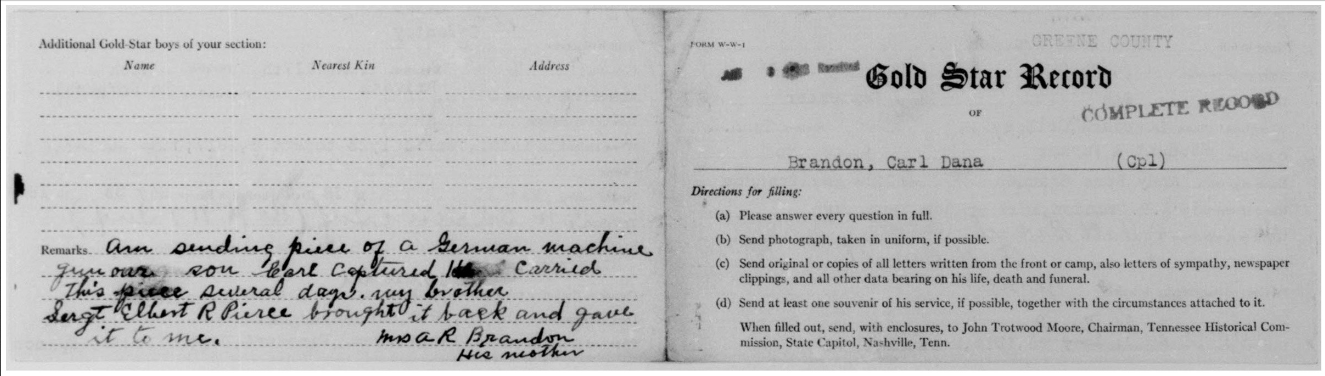 Additional Gold Star boys of your section:
Name Nearest Kin Address
Remarks. Am sending piece of a German machine
gun our son Carl Captured Carried
this piece several days. my brother
Sergt Elbert R Pierce brought it back and gave
it to me. Mrs A R Brandon
His mother
FORM W-W-1
GREENE COUNTY
Received
Gold Star Record
OF
COMPLETE RECORD
Brandon, Carl Dana (Cpl)
Directions for filling:
(a) Please answer every question in full.
(b) Send photograph, taken in uniform, if possible.
(c) Send original or copies of all letters written from the front or camp, also letters of sympathy, newspaper
clippings, and all other data bearing on his life, death and funeral.
(d) Send at least one souvenir of his service, if possible, together with the circumstances attached to it.
When filled out, send, with enclosures, to John Trotwood Moore, Chairman, Tennessee Historical Com-
mission, State Capitol, Nashville, Tenn.